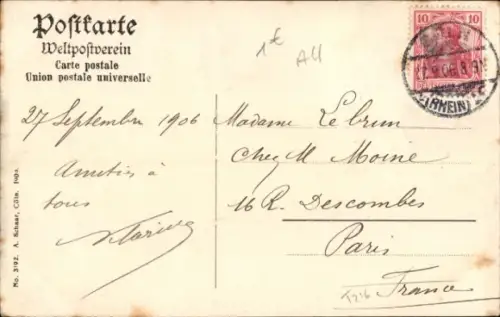 Postkarte
Weltpostverein
Carte postale
Union postale universelle
1€
A4
10 10
(RHEIN)
27 Septembre 1906
Amitiés à
tous
Madame Lebrun
Chez M Moine
16 R. Descombes
Paris
France
No. 3192. A. Schaar, Cöln. 1904.